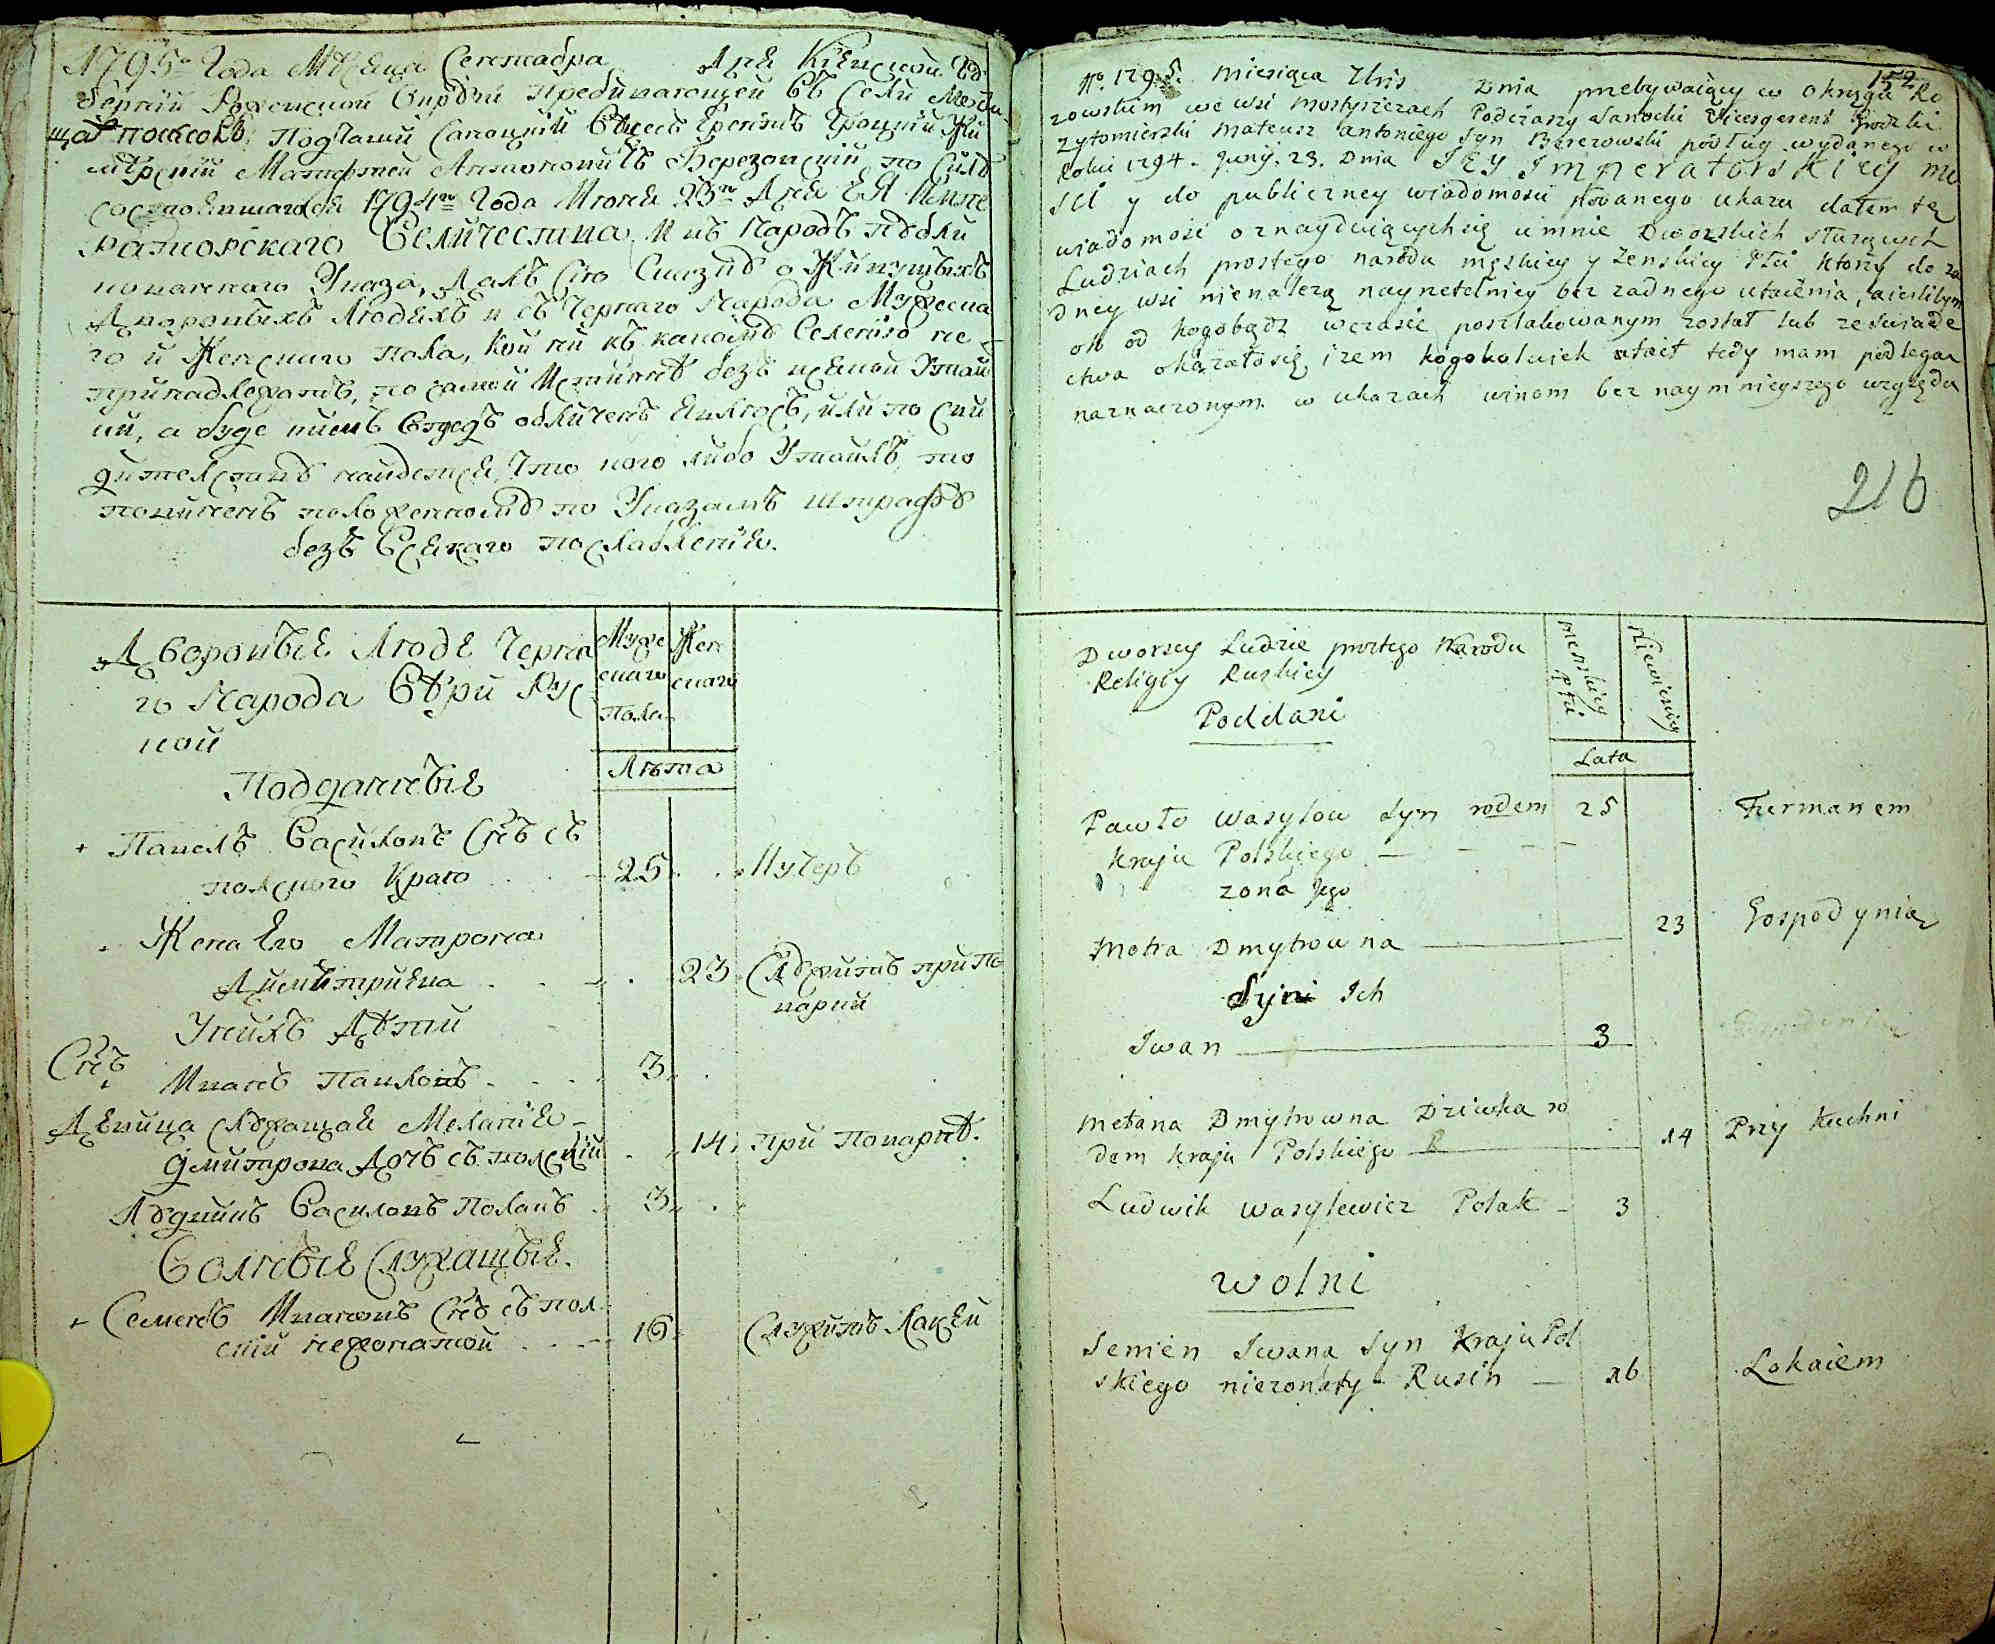 1795 Года Мсяца Сентабра Дня Кіевской Гу
берніи Рожевской Округи пребывающей въ Селе
посесоръ Подчашій Саноцкій Вицесъ Герентъ Гроцкій Жи
мѣрскій Матьфей Антоновичъ Березовскій по Силѣ
состоявшагося 1794го Года Июня 23го Дня ЕЯ Импе
раторскаго Величества И въ Народъ публи
кованнаго Указа, Далъ Сію Сказку о Живущихъ
Дворовыхъ Людяхъ и съ Чернаго Народа Мужеска
го и Женскаго пола, кои ни къ какому Селенію не
принадлежатъ, по самой Истиннѣ безъ всякой Утай
ки, а буде кемъ впредъ обличенъ явлюсъ, или по Сви
дителству найдется, Что кого либо Утаилъ, то
повиненъ положенному по Указамъ штрафу
безъ Всякаго послабленія.
Дворовые Люде Черна
го Народа Вѣри Рус
кой
Муже
скаго
Пола
Жен
скаго
Лѣта
Подданные
Павелъ Василовъ Снъ съ
полского Краю 25 Кучеръ
Жена Его Матрона
Димитриева 23 Служитъ при По
варни
Унихъ Дѣти
Снъ Иванъ Павловъ 3
Девица служащая Меланія
Дмитрова Дочь съ полскій 14 при Поварнѣ.
Людвикъ Василовъ Полакъ 3
Волные Служащые.
Семенъ Ивановъ Снъ съ пол
скій нежонатой 16 Служитъ Лакей
152
Ro. 1795. Miesiąca 7bris Dnia przebywaiący w okręgu Ro
zowskim we wsi Mostyszczach Podczaszy Sanocki Vicesgerent Grodzki
Zytomierski Mateusz Antoniego Syn Berezowski podług wydanego w
Roku 1794. Juny. 23. Dnia JEY Imperatorskiey Mo
sci y do publiczney wiadomosci podanego ukazu daiem tę
wiadomosc o znayduiących się u mnie Dworskich służących
Ludziach prostego narodu męskiey y Zenskiey Płci Ktorzy do za
dney wsi nienalezą nayrzetelniey bez zadnego utaienia, aieslibym
on od kogobądz wczasie poszlakowanym został lub ze swiade
ctwa okazałosię, izem kogokolwiek utaił tedy mam podlegac
naznaczonym w ukazach winom bez naymnieyszego względu
216
Dworscy Ludzie prostego Narodu
Religiy Ruskiey
Poddani
męskiey Płci
Niewiesciey
Lata
Pawło Wasylow Syn rodem 25 Furmanem
kraju Polskiego
zona Jego
Motra Dmytrowna 23 Gospodynią
Syni Ich
Iwan 3
Metana Dmytrowna Dziwka ro
dem kraju Polskiego 14 Przy Kuchni
Ludwik Wasylewicz Polak 3
Wolni
Semen Iwana Syn Kraju Pol
skiego niezonaty Rusin 16 Lokaiem